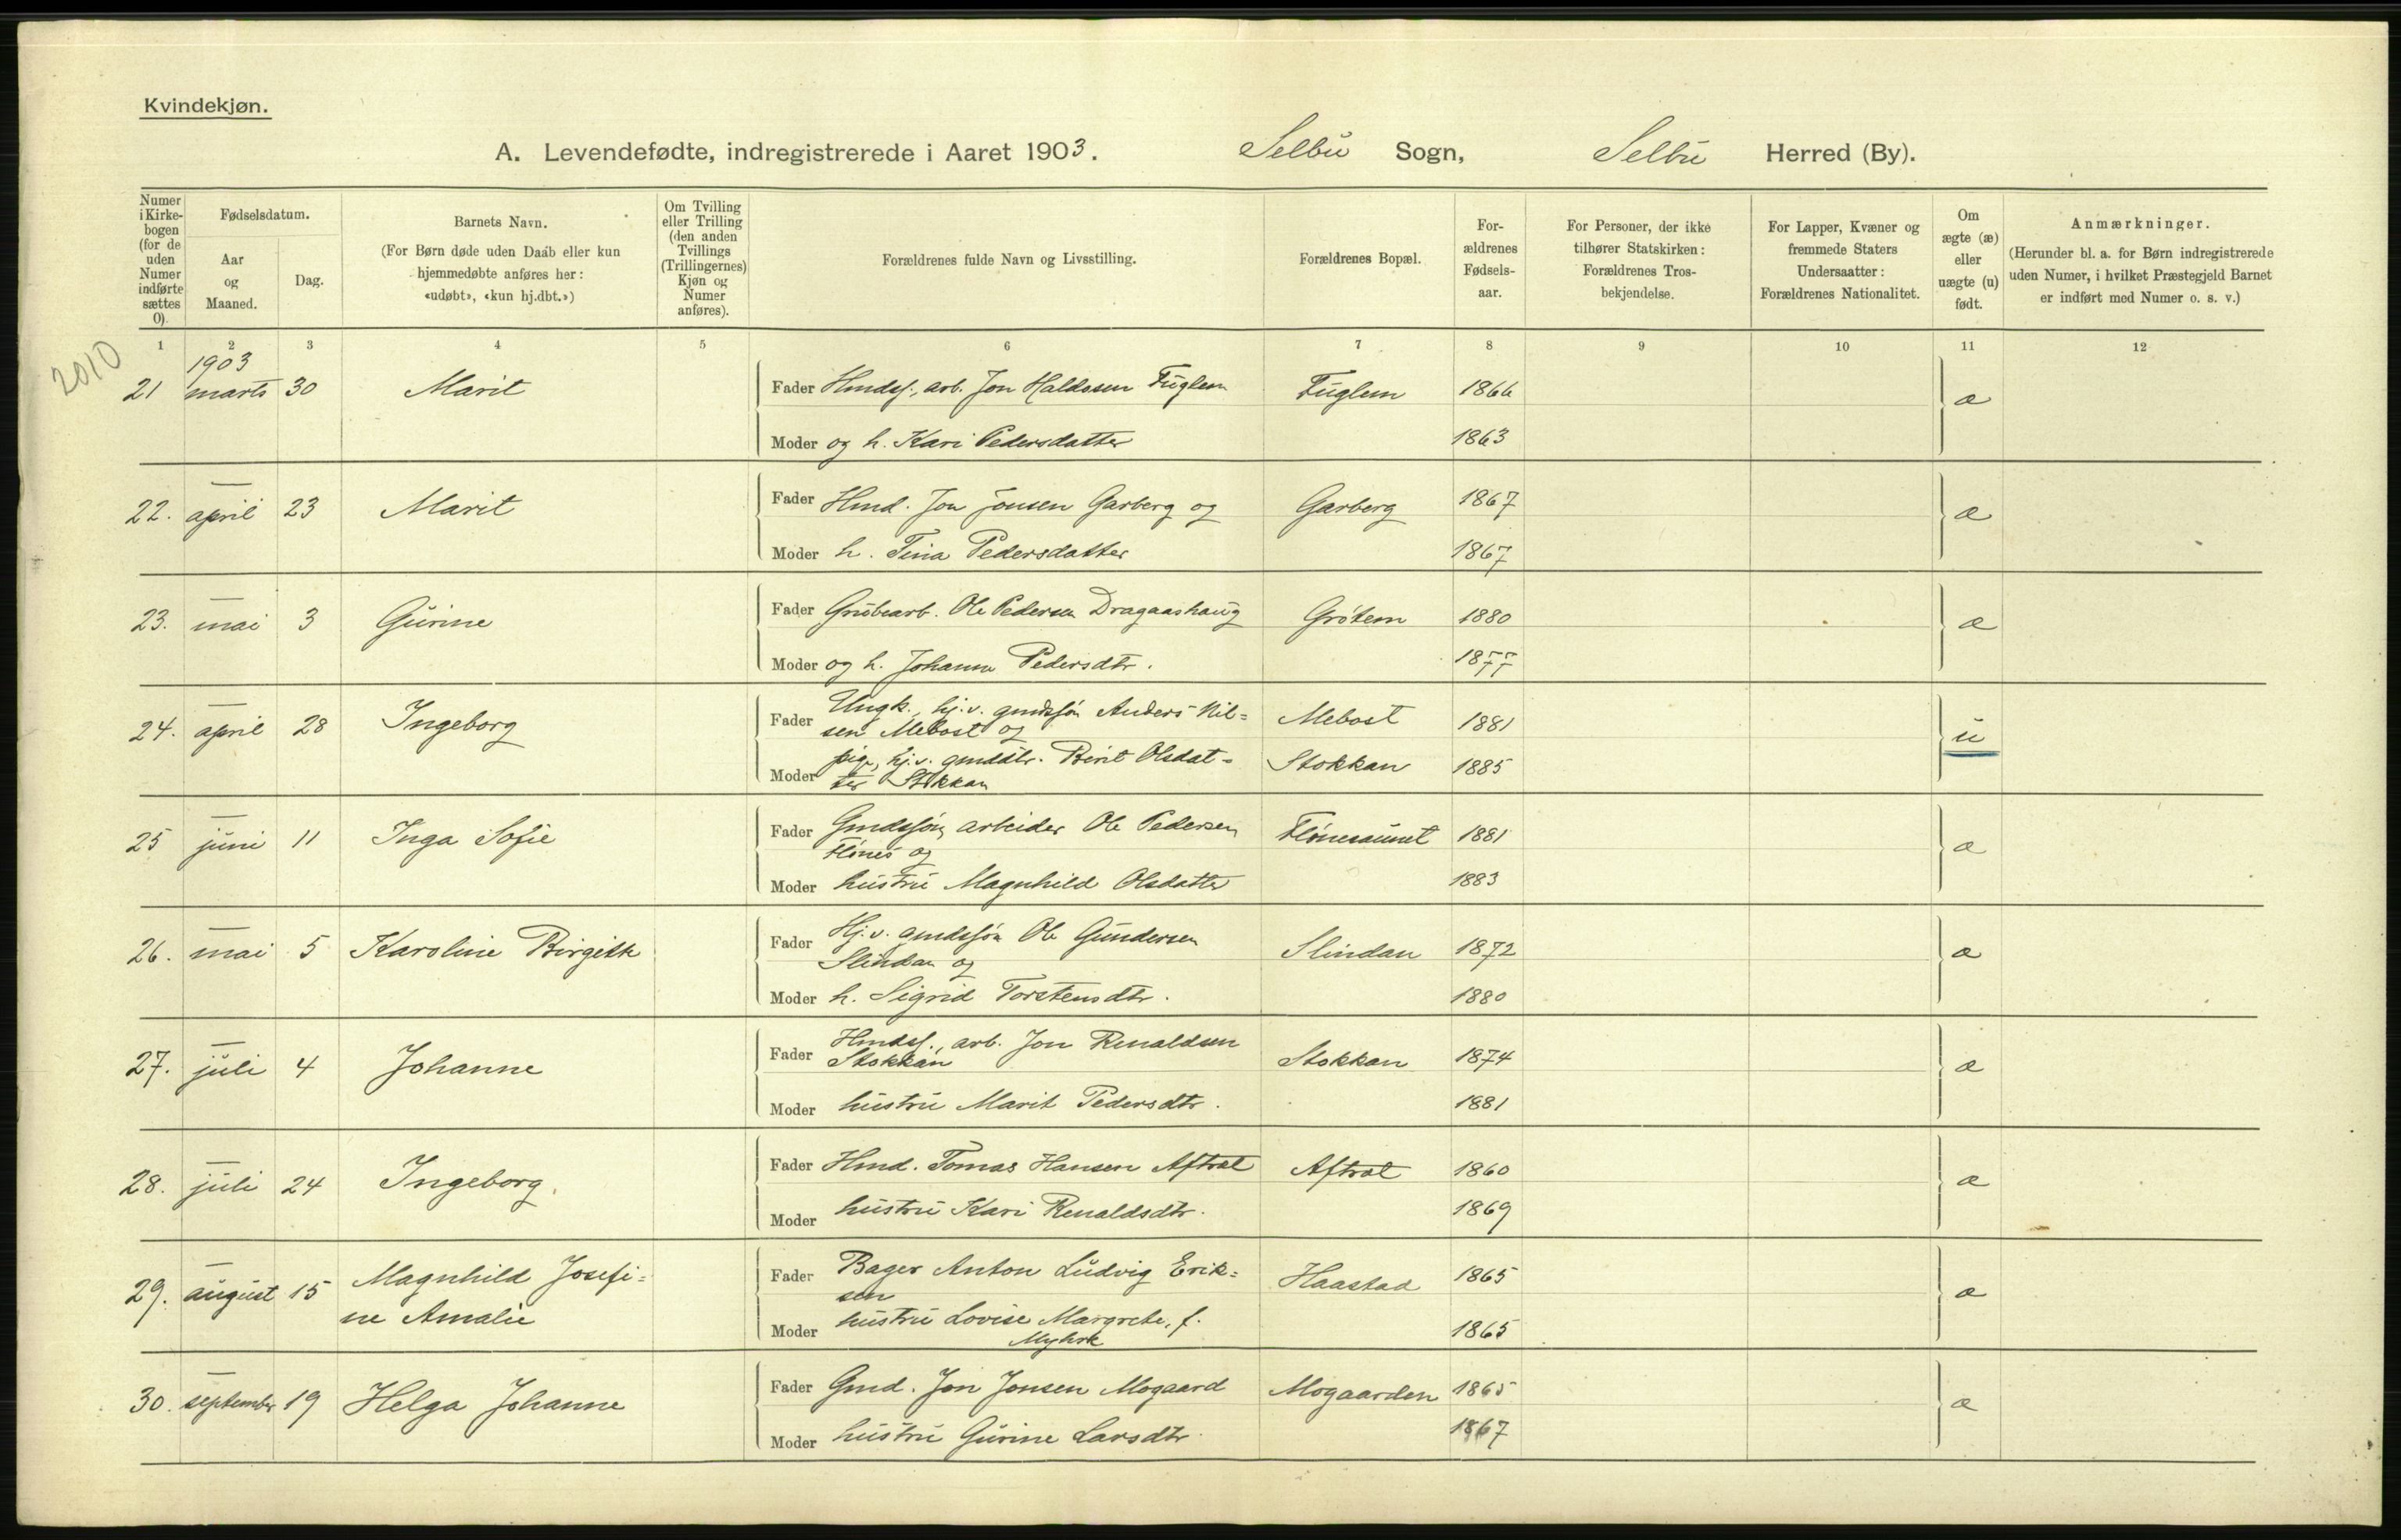 Kvindekjøn.
A. Levendefødte, indregistrerede i Aaret 1903. Selbu Sogn, Selbu Herred (By).
Numer i Kirkebogen (for de uden Numer indførte sættes 0).
Fødselsdatum.
Aar og Maaned.
Dag.
Barnets Navn.
(For Børn døde uden Daab eller kun hjemmedøbte anføres her: «udøbt», «kun hj.dbt.»)
Om Tvilling eller Trilling (den anden Tvillings (Trillingernes) Kjøn og Numer anføres).
Forældrenes fulde Navn og Livsstilling.
Forældrenes Bopæl.
Forældrenes Fødselsaar.
For Personer, der ikke tilhører Statskirken: Forældrenes Trosbekjendelse.
For Lapper, Kvæner og fremmede Staters Undersaatter: Forældrenes Nationalitet.
Om ægte (æ) eller uægte (u) født.
Anmærkninger.
(Herunder bl. a. for Børn indregistrerede uden Numer, i hvilket Præstegjeld Barnet er indført med Numer o. s. v.)
1 2 3 4 5 6 7 8 9 10 11 12
2010
1903
21 marts 30 Marit Fader Hmdsf., arb. Jon Haldssen Fuglem Fuglem 1866 æ
Moder og h. Kari Pedersdatter 1863
22. — april 23 Marit Fader Hmd. Jon Jonsen Garberg og Garberg 1867 æ
Moder h. Tina Pedersdatter 1867
23. — mai 3 Gurine Fader Grubearb. Ole Pedersen Dragaashaug Grötem 1880 æ
Moder og h. Johanna Pedersdtr. 1877
24. — april 28 Ingeborg Fader Ungk., hj.v. gmdsfön Anders Nil=
sen Mebost og Mebost 1881 u
Moder pige, hj.v. gmddtr. Berit Olsdat=
ter Stokkan Stokkan 1885
25 — juni 11 Inga Sofie Fader Gmdssön, arbeider Ole Pedersen
Flönes og Flönesaunet 1881 æ
Moder hustru Magnhild Olsdatter 1883
26. — mai 5 Karoline Birgitte Fader Hj.v. gmdssön Ole Gundersen
Slindan og Slindan 1872 æ
Moder h. Sigrid Torstensdtr. 1880
27. — juli 4 Johanne Fader Hmdsf., arb. Jon Renaldsen
Stokkan Stokkan 1874 æ
Moder hustru Marit Pedersdtr. 1881
28. — juli 24 Ingeborg. Fader Hmd. Tomas Hansen Aftret Aftret 1860 æ
Moder hustru Kari Renaldsdtr. 1869
29. — august 15 Magnhild Josefi=
ne Amalie Fader Bager Anton Ludvig Erik=
sen Haastad 1865 æ
Moder hustru Lovise Margrete, f.
Myhre 1865
30. — september 19 Helga Johanne Fader Gmd. Jon Jonsen Mogaard Mogaarden 1865 æ
Moder hustru Gurine Larsdtr. 1867